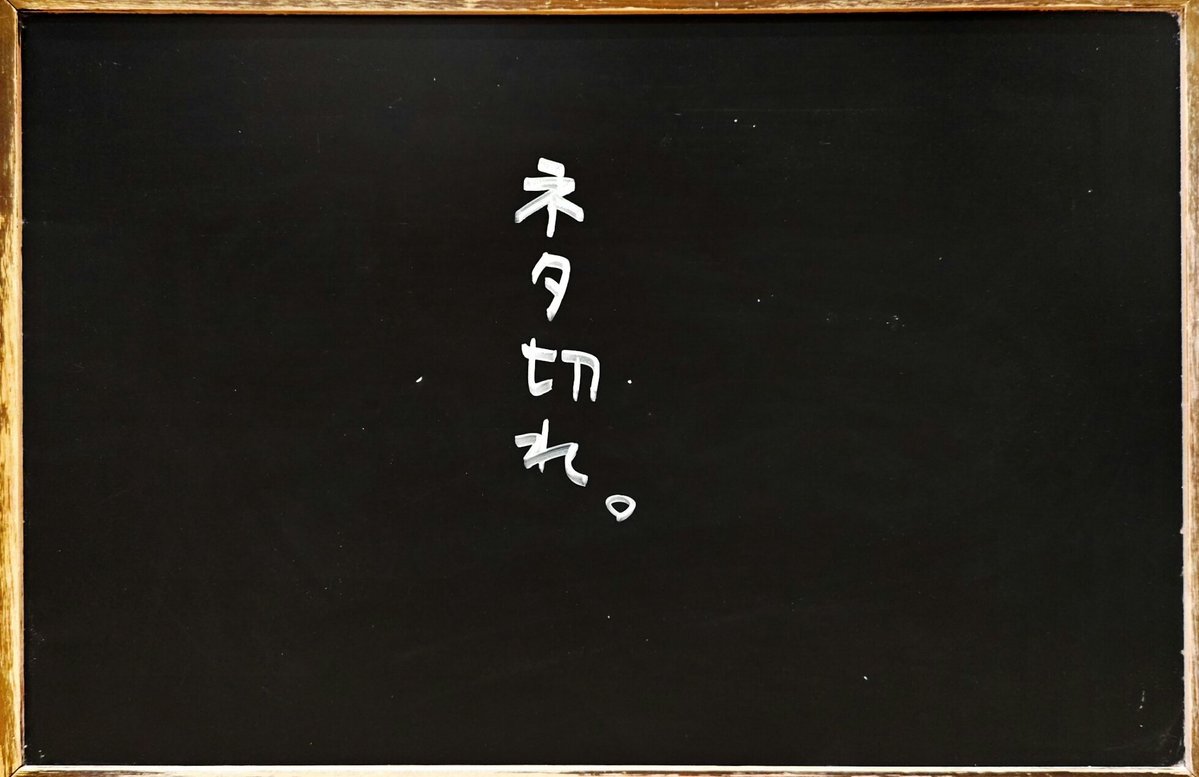 ネタ切れ。